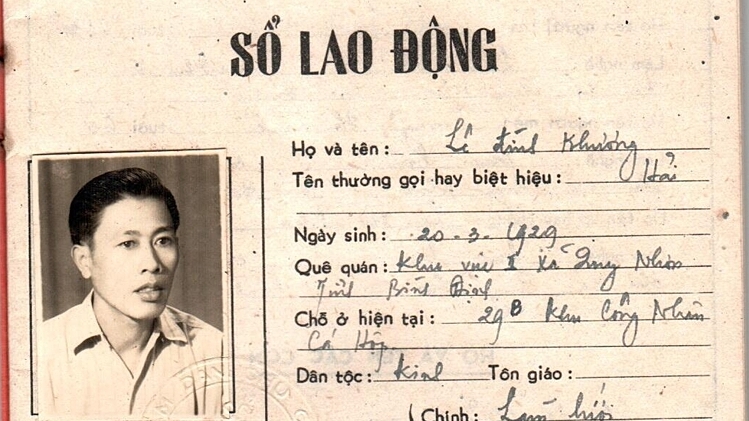 SỔ LAO ĐỘNG
Họ và tên : Lê đình Khương
Tên thường gọi hay biệt hiệu : Hải
Ngày sinh : 20-3-1929
Quê quán : Khu vực I xã Quy Nhơn
Tỉnh Bình Định
Chỗ ở hiện tại : 29B Khu Công Nhân
Cá Hộp
Dân tộc : Kinh Tôn giáo :
Chính : Làm lưới